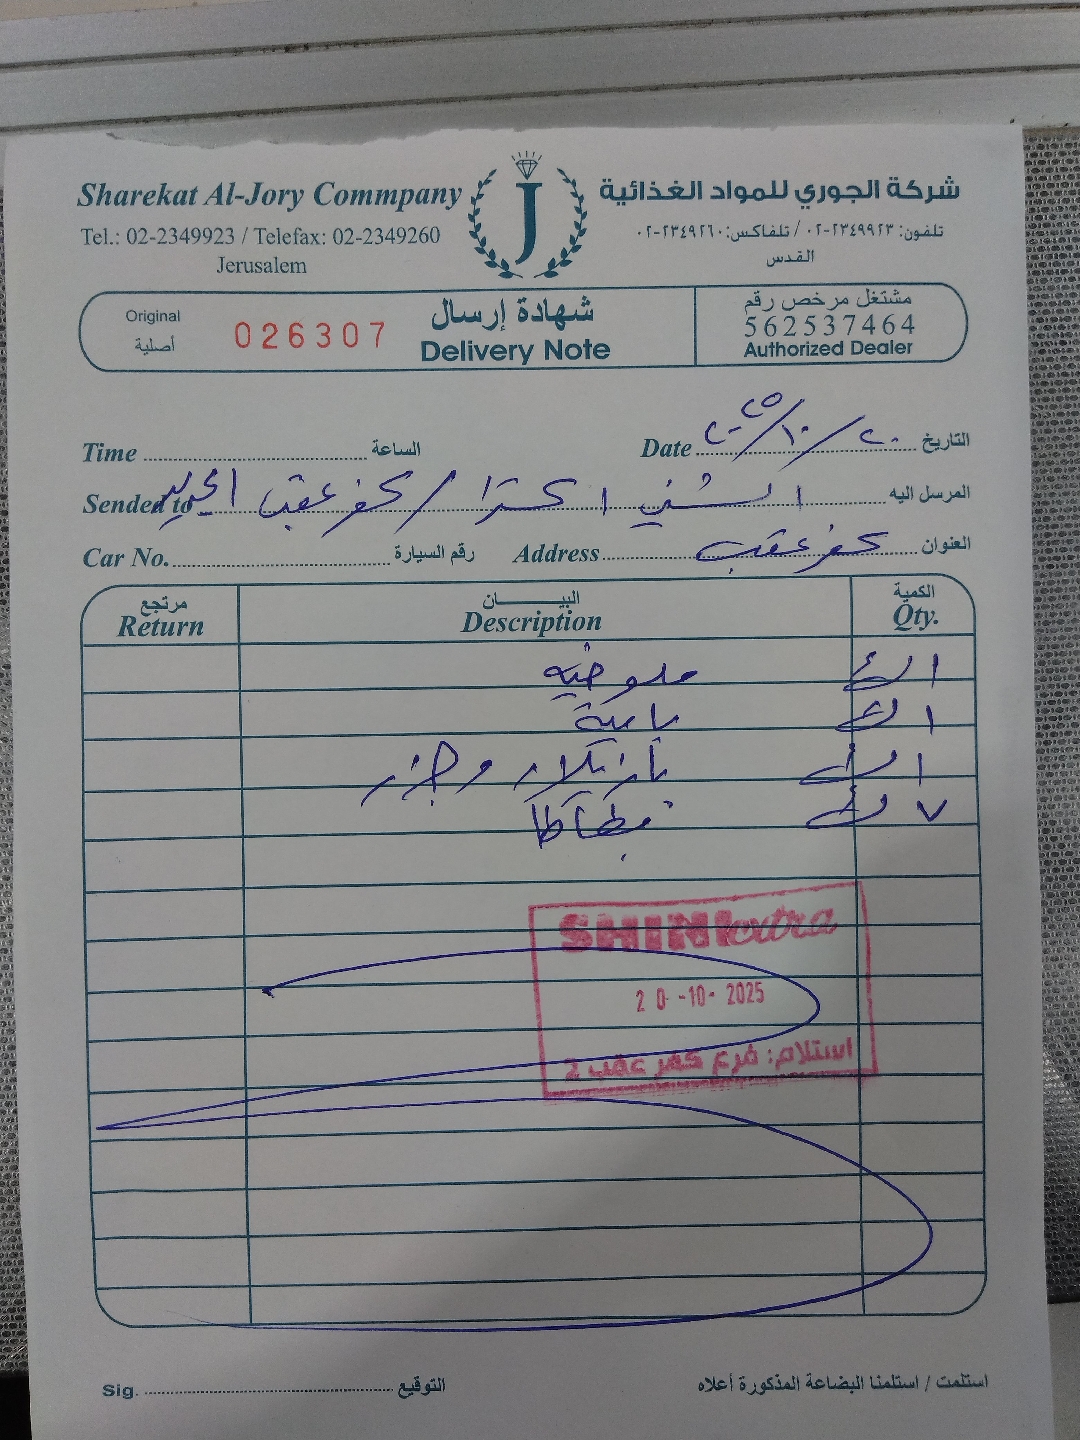 Sharekat Al-Jory Commpany
شركة الجوري للمواد الغذائية
Tel.: 02-2349923 / Telefax: 02-2349260
تلفون: ٢٣٤٩٩٢٣-٠٢ / تلفاكس: ٢٣٤٩٢٦٠-٠٢
Jerusalem
القدس
J
Original
أصلية
026307
شهادة إرسال
Delivery Note
مشتغل مرخص رقم
562537464
Authorized Dealer
Time الساعة
Date ٢٠٢٥/١٠/٢٠ التاريخ
Sended to الشني اكسترا / كفر عقب الجديد المرسل اليه
Car No. رقم السيارة Address كفر عقب العنوان
مرتجع البيـــــان الكمية
Return Description Qty.
ملوخيه
بامية
بازيلاء وجزر ١
بطاطا ٧
SHINI extra
20-10-2025
استلام: فرع كفر عقب 2
Sig. التوقيع
استلمت / استلمنا البضاعة المذكورة أعلاه